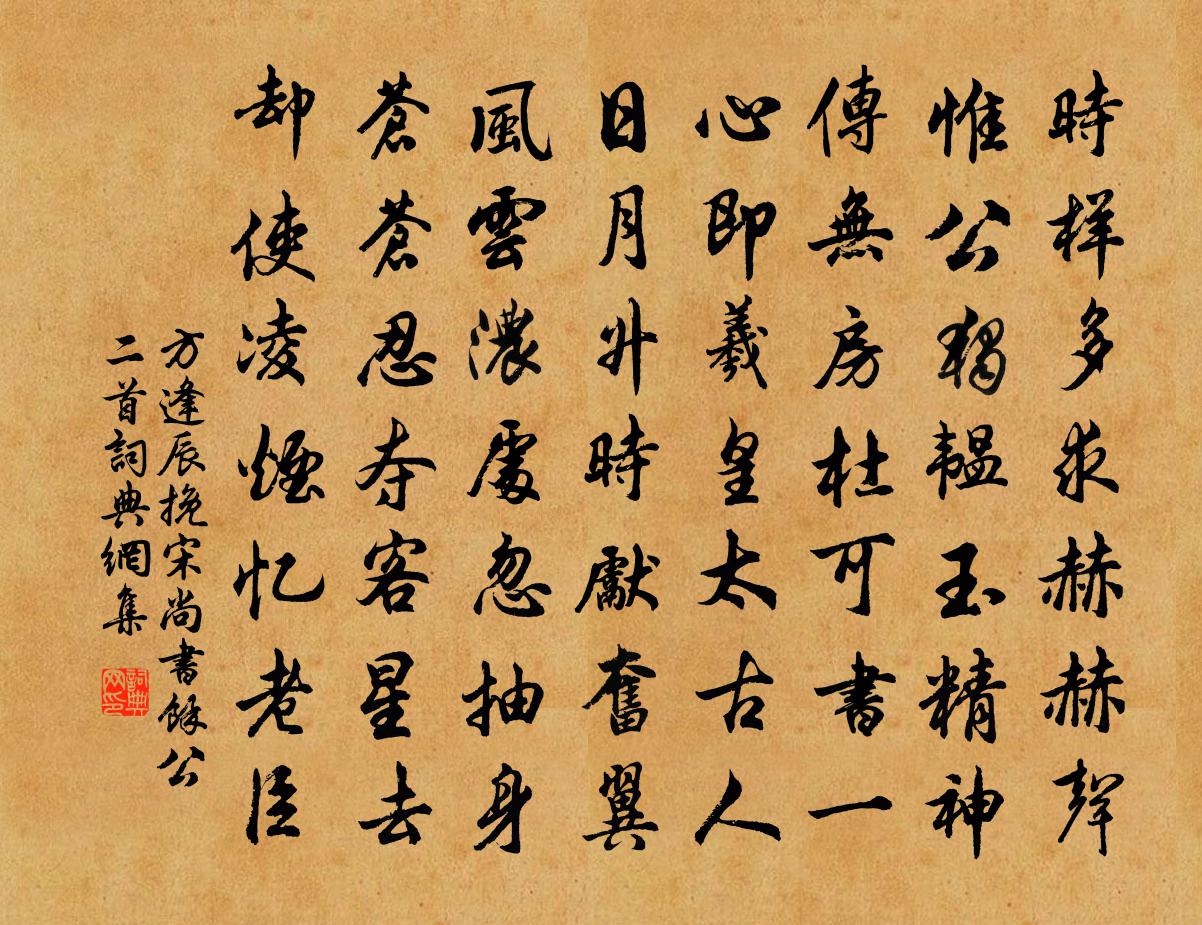 時样多求赫赫聲
惟公獨韫玉精神
傳無房杜可書一
心即羲皇太古人
日月升時獻奮翼
風雲濃處忽抽身
蒼蒼忍夺客星去
却使凌煙忆老臣
方逢辰挽宋尚書馀公
二首詞典網集
詞典网印